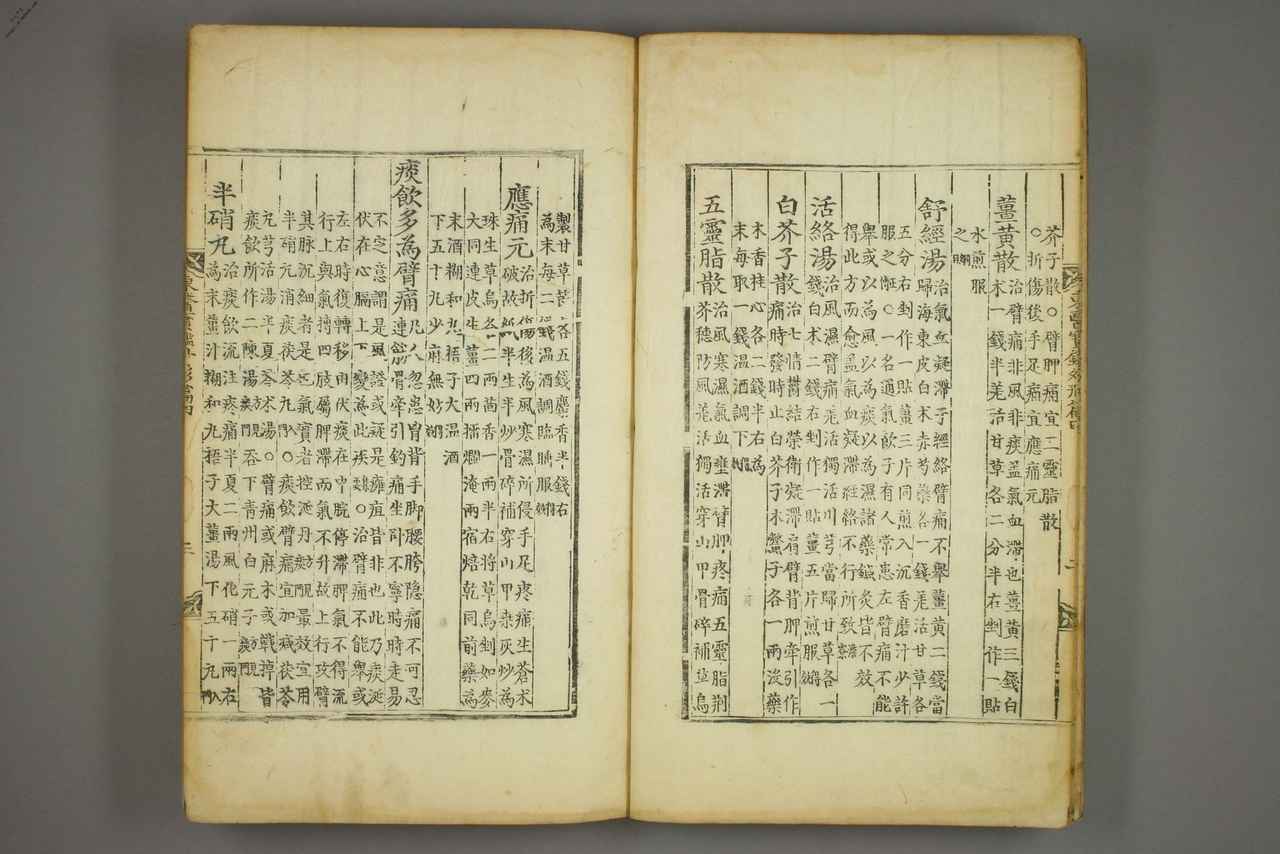 芥子散○臂胛痛宜五靈脂散
○折傷後手足痛宜應痛元
薑黃散治臂痛非風非痰盖氣血凝滯也薑黃三錢白
朮一錢半羌活甘草各二分半右剉作一貼
水煎服
之綱
舒經湯治氣血凝滯于經絡臂痛不擧薑黃二錢當
歸海東皮白朮赤芍藥各一錢羌活甘草各
五分右剉作一貼薑三片同煎入沉香磨汁少許
服之○一名通氣飮子有人常患左臂痛不能
擧或以為風以為痰以為濕諸藥鍼灸皆不效
得此方而愈盖氣血凝滯經絡不行所致
活絡湯治風濕臂痛羌活獨活川芎當歸甘草各一
錢白朮二錢右剉作一貼薑五片煎服綱
白芥子散治七情鬱結榮衛凝滯肩臂背胛牽引作
痛時發時止白芥子木鱉子各一兩沒藥
木香桂心各二錢半右為
末每取一錢溫酒調下綱
五靈脂散治風寒濕氣血壅滯臂胛疼痛五靈脂荊
芥穗防風羌活獨活穿山甲骨碎補草烏
製甘草節各五錢麝香半錢右
為末每二錢溫酒調臨睡服綱
應痛元治折傷後為風寒濕所侵手足疼痛生蒼朮
破故紙半生半炒骨碎補穿山甲桑灰炒為
珠生草烏各二兩茴香一兩半右將草烏剉如麥
大同連皮生薑四兩擂爛淹兩宿焙乾同前藥為
末酒糊和丸梧子大溫酒
下五十丸少麻無妨綱
痰飮多為臂痛凡人忽患胷背手脚腰胯隱痛不可忍
連筋骨牽引釣痛坐臥不寧時時走易
不定意謂是風證或疑是癰疽皆非也此乃痰涎
伏在心膈上下變為此疾綱○治臂痛不能擧或
左右時復轉移由伏痰在中脘停滯脾氣不得流
行上與氣搏四肢屬脾滯而氣不升故上行攻臂
其脉沉細者是也氣實者控涎丹最效宜用
半硝元消痰茯苓丸○痰飮臂痛宜加減茯苓
元芎活湯半夏芩朮湯○臂痛或麻木或戰掉皆
痰飮所作二陳湯吞下靑州白元子
半硝丸治痰飮流注疼痛半夏二兩風化硝一兩右
為末薑汁糊和丸梧子大薑湯下五十丸入